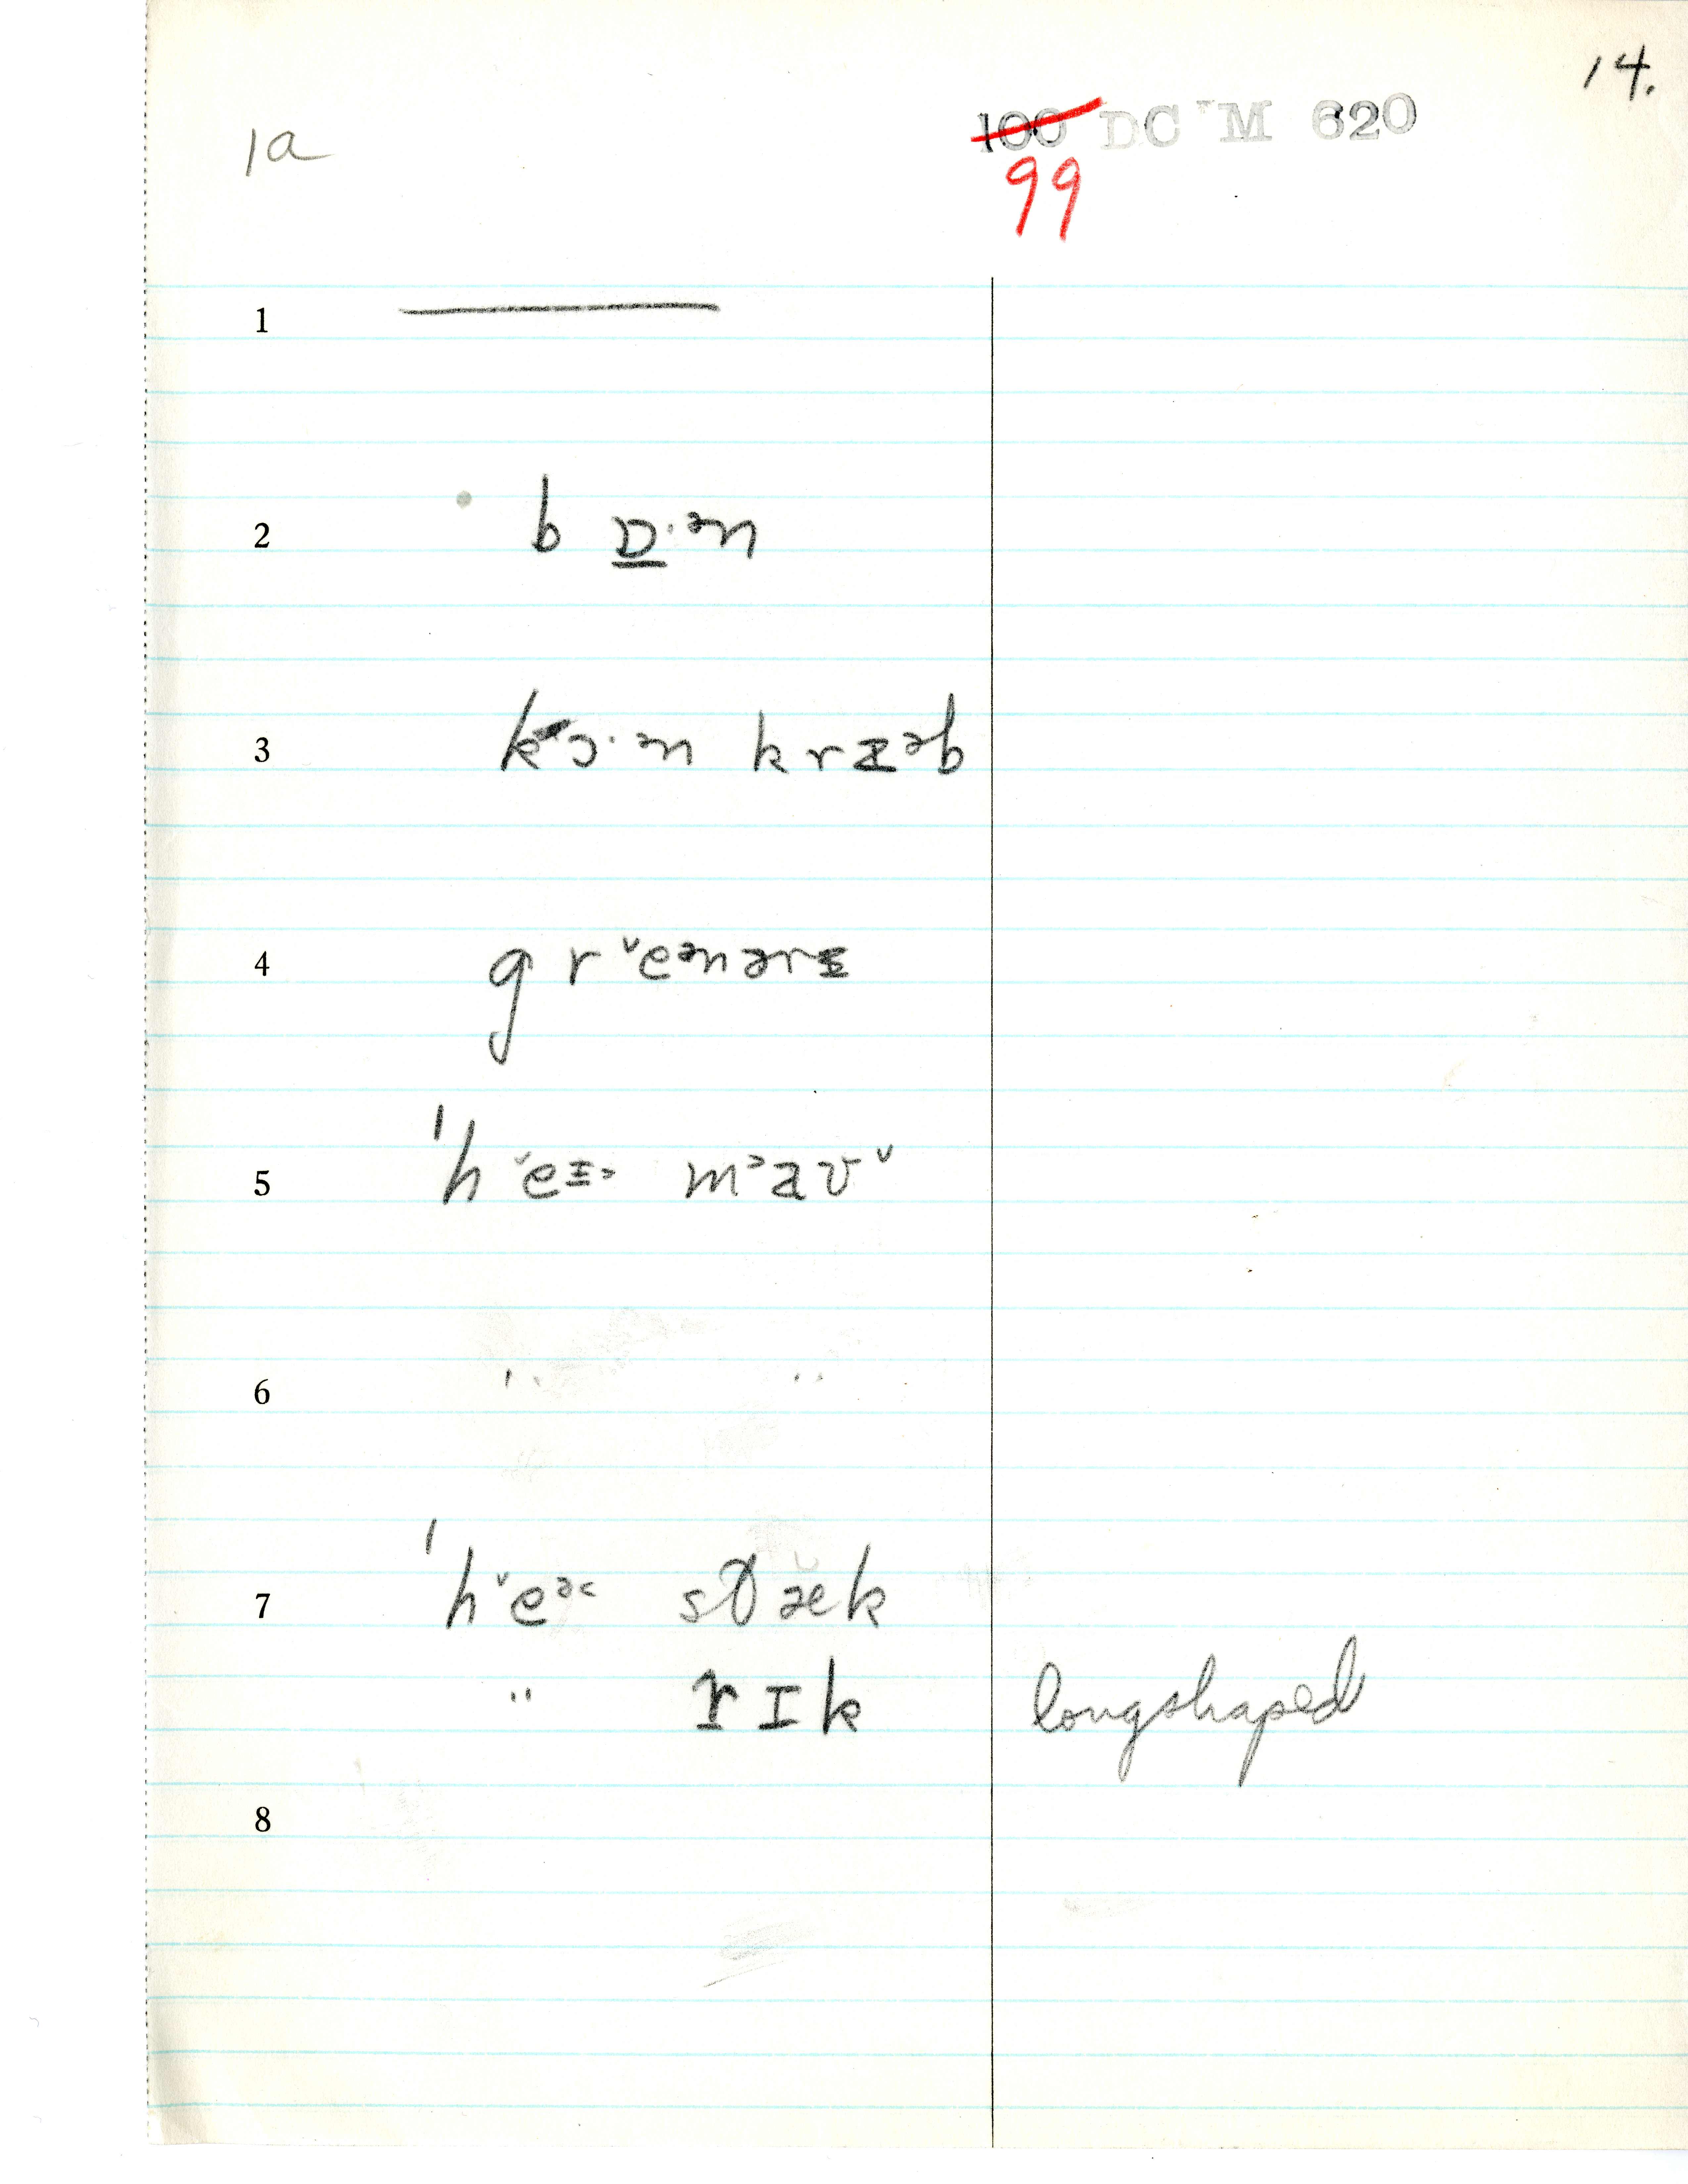 14.
1a
100 DC M 620
99
1
2 b ɒ·ᵊn
3 k ɔ·ᵊn k r æᵊb
4 g r ˇeᵊnərɪ
5 ˈh ˇeɪ˃ m˃aʊˇ
6 " "
7 ˈh ˇeᵊ˂ stæ̆k
" rɪk longshaped
8